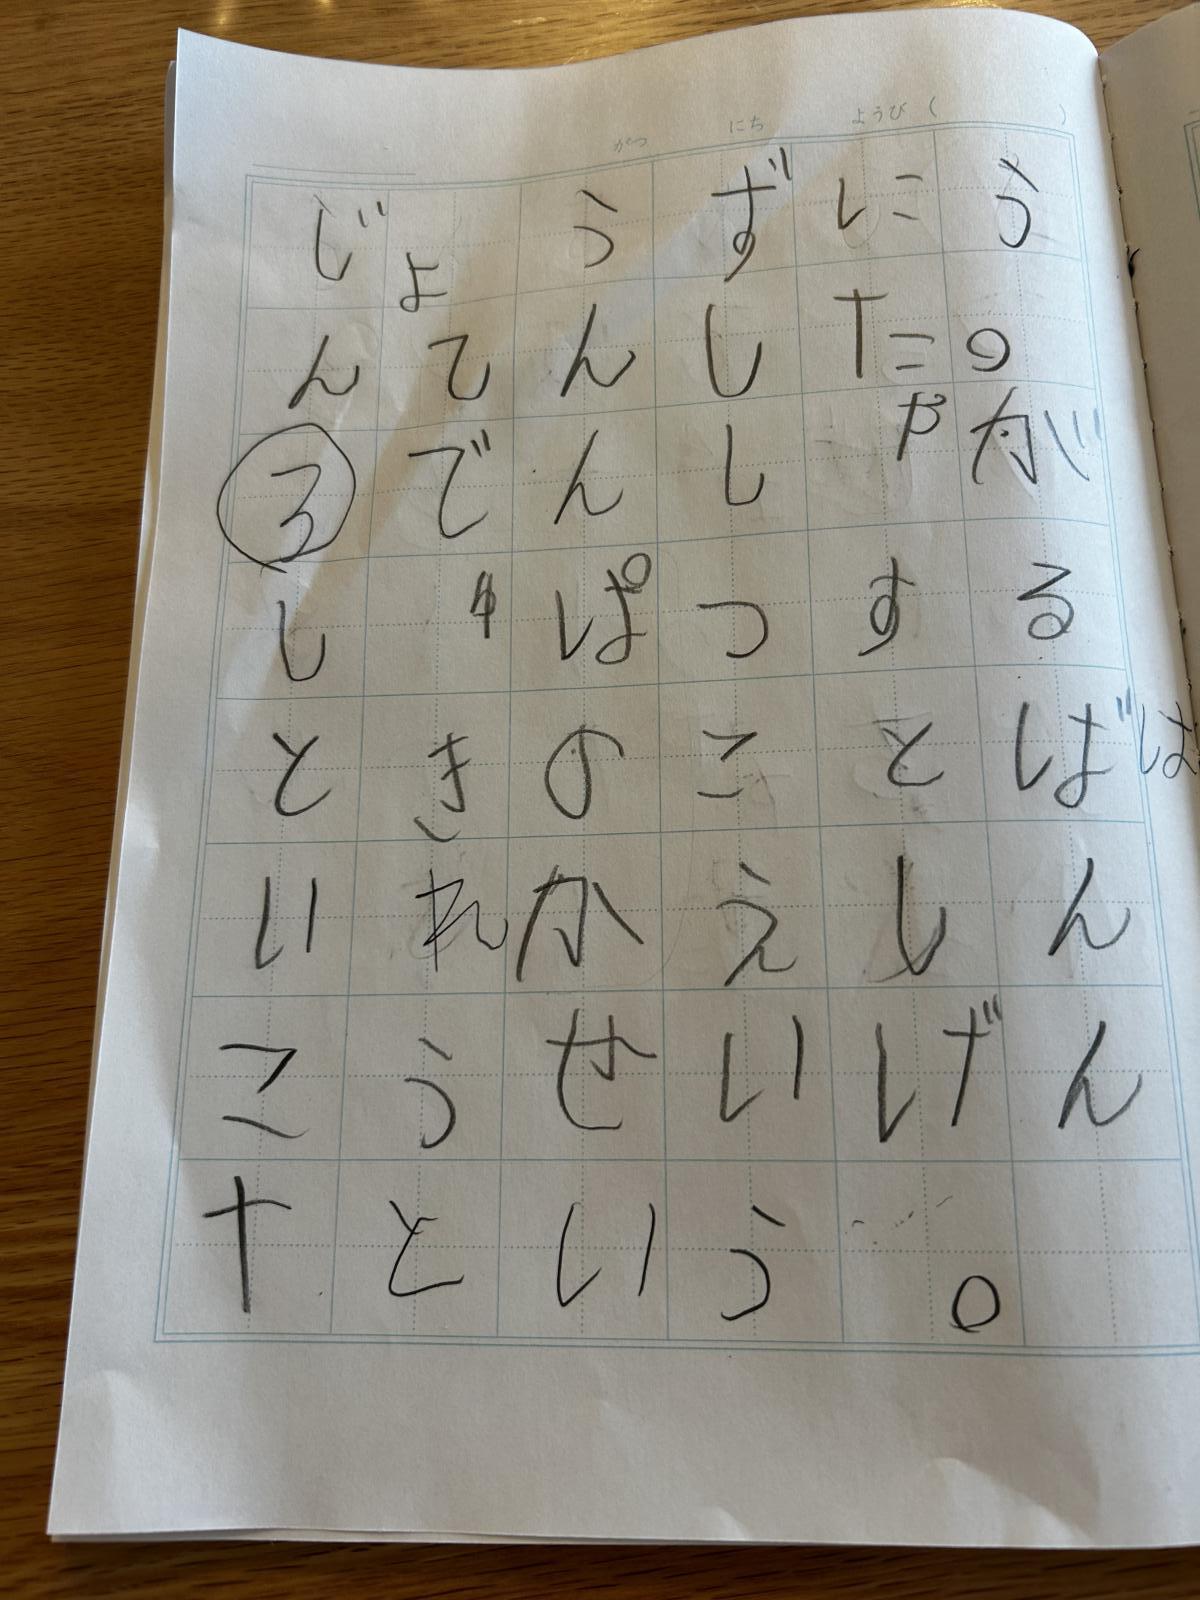 がつ にち ようび ( )
じょうずにう
んてんした。
③でんしゃが
しゅぱつする
ときのことばは
いれかえしん
こうせいげん
十という。